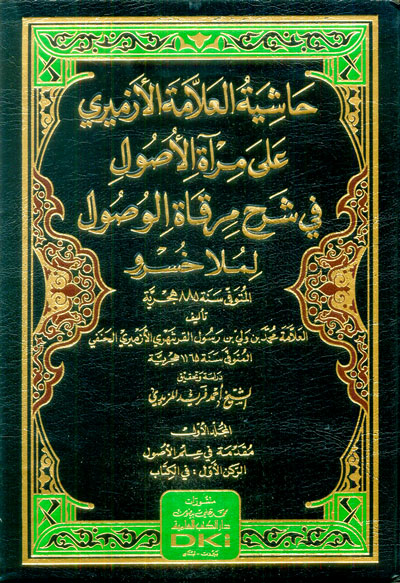 حاشية العلامة الأزميري
على مرآة الأصول
في شرح مرقاة الوصول
لملا خسرو
المتوفى سنة ٨٨٥ هجرية
تأليف
العلامة محمد بن ولي بن رسول القرشهري الأزميري الحنفي
المتوفى سنة ١١٦٥ هجرية
دراسة وتحقيق
الشيخ أحمد فريد المزيدي
المجلد الأول
مقدمة في علم الأصول
الركن الأول: في الكتاب
منشورات
محمد علي بيضون
دار الكتب العلمية
DKi
بيروت - لبنان